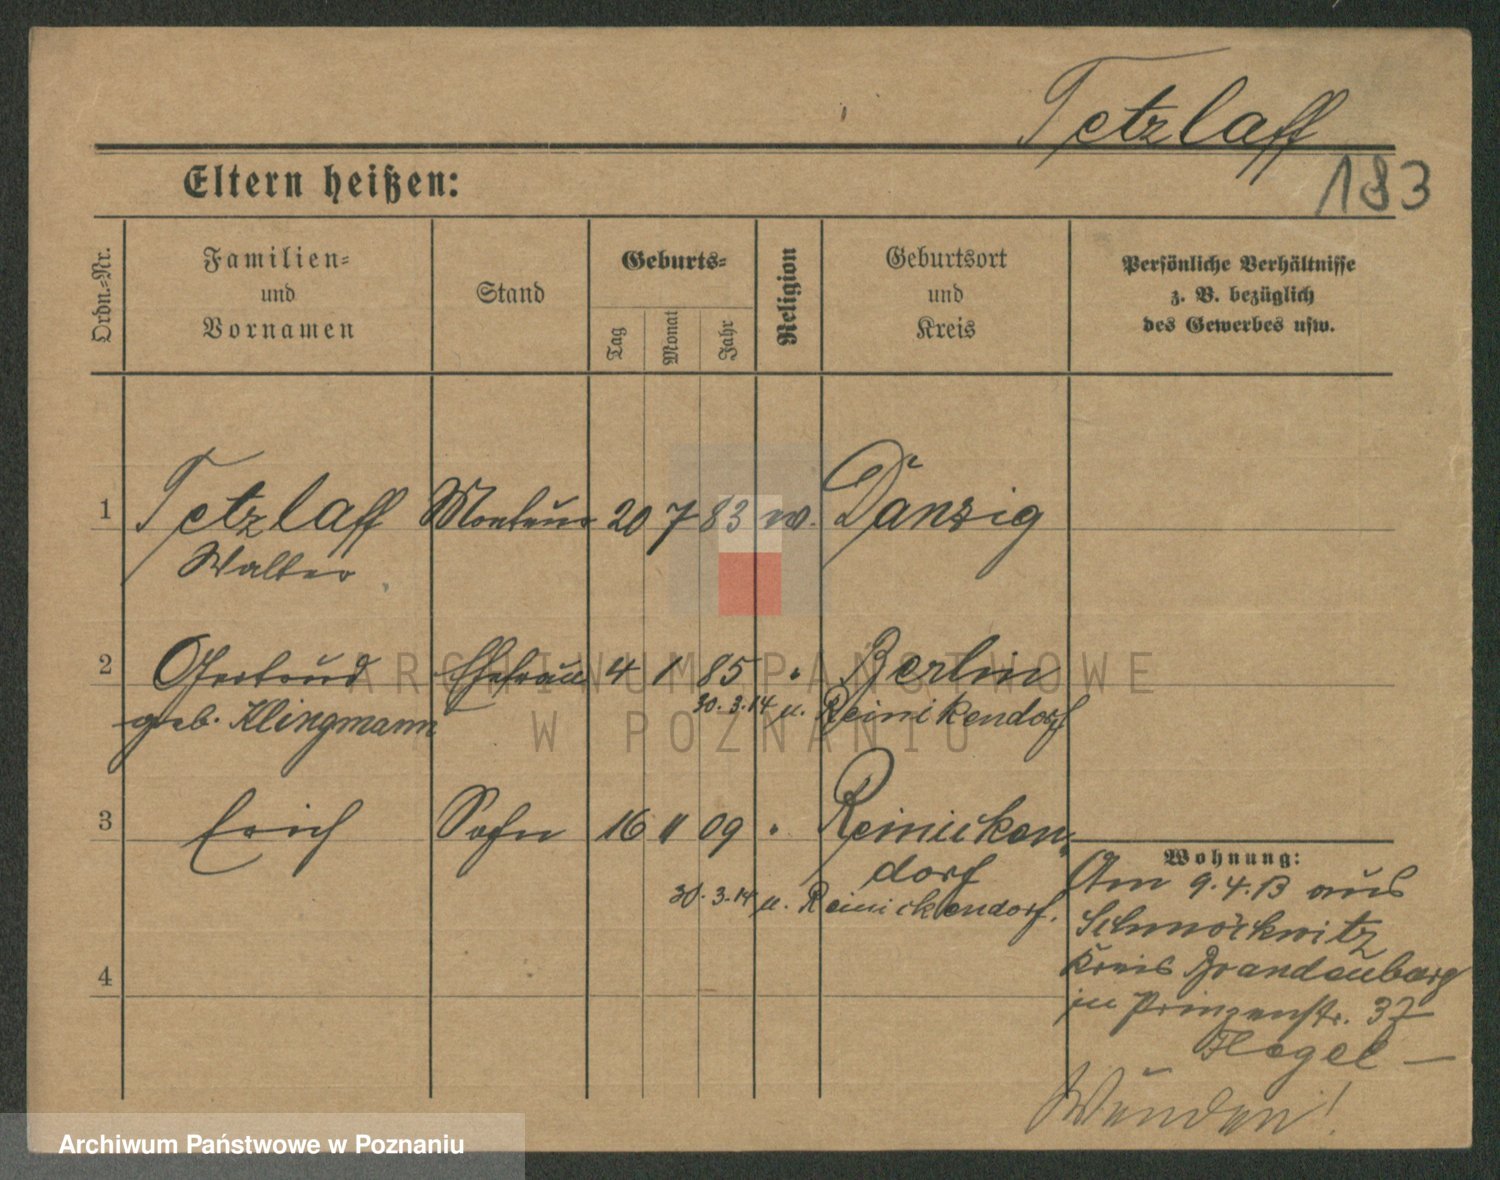 Tetzlaff
183
Eltern heißen:
Ordn.-Nr.
Familien-
und
Vornamen
Stand
Geburts-
Tag
Monat
Jahr
Religion
Geburtsort
und
Kreis
Persönliche Verhältnisse
z. B. bezüglich
des Gewerbes usw.
1 Tetzlaff Monteur 20 7 83 ev. Danzig
Walter
2 Gertrud Ehefrau 4 1 85 " Berlin
geb. Klingmann 30.3.14 n. Reinikendorf
3 Erich Sohn 16 11 09 " Reinicken
dorf
30.3.14 n. Reinickendorf.
Wohnung:
Am 9.4.13 aus
Schmöckwitz
Kreis Brandenburg
in Prinzenstr. 37
Wenden!
4
ARCHIWUM PAŃSTWOWE
W POZNANIU
Archiwum Państwowe w Poznaniu